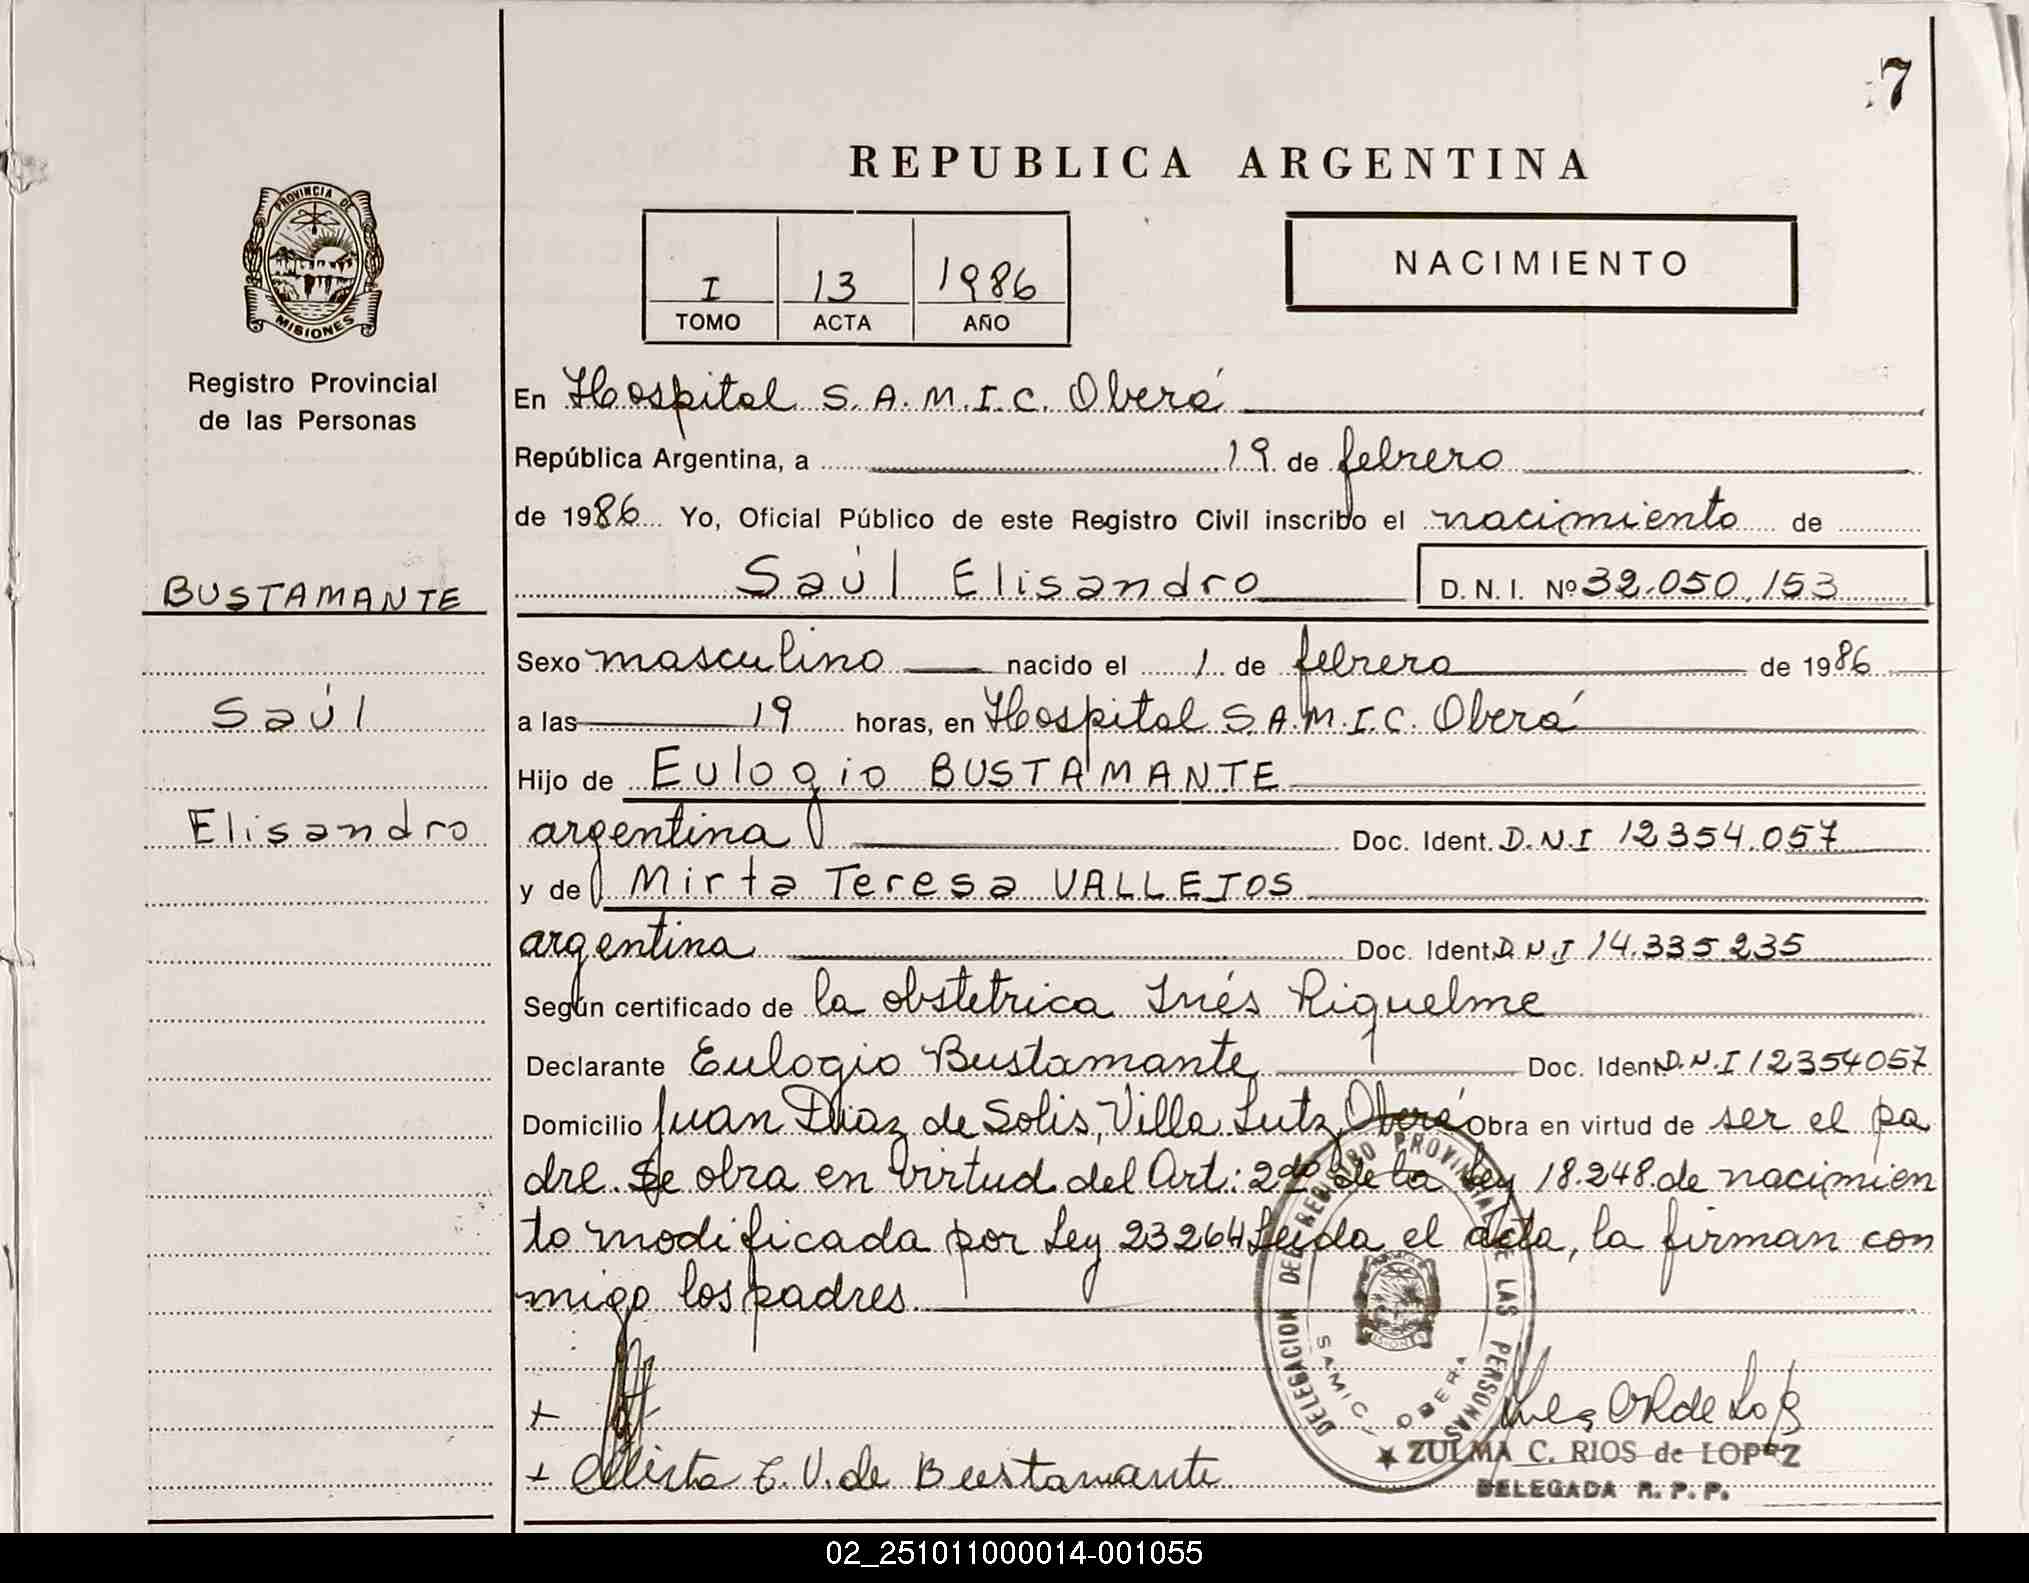 7
REPUBLICA ARGENTINA
PROVINCIA DE
MISIONES
Registro Provincial
de las Personas
I 13 1986
TOMO ACTA AÑO
NACIMIENTO
En Hospital S.A.M.I.C. Oberá
República Argentina, a 19 de febrero
de 1986 Yo, Oficial Público de este Registro Civil inscribo el nacimiento de
Saúl Elisandro D.N.I. Nº 32.050.153
BUSTAMANTE
Saúl
Elisandro
Sexo masculino nacido el 1 de febrero de 1986
a las 19 horas, en Hospital S.A.M.I.C. Oberá
Hijo de Eulogio BUSTAMANTE
argentina Doc. Ident. D.N.I 12354.057
y de Mirta Teresa VALLEJOS
argentina Doc. Ident. D.N.I 14.335.235
Según certificado de la obstetrica Inés Riquelme
Declarante Eulogio Bustamante Doc. Ident. D.N.I 12354057
Domicilio Juan Diaz de Solis, Villa Lutz, Oberá Obra en virtud de ser el pa
dre. Se obra en virtud del Art: 2do de la Ley 18.248 de nacimien
to modificada por Ley 23264 Leida el acta, la firman con
migo los padres
DELEGACION DEL REGISTRO PROVINCIAL DE LAS PERSONAS
SAMIC, OBERA
+
+ Mirta T. V. de Bustamante
ZULMA C. RIOS de LOPEZ
DELEGADA R.P.P.
02_251011000014-001055